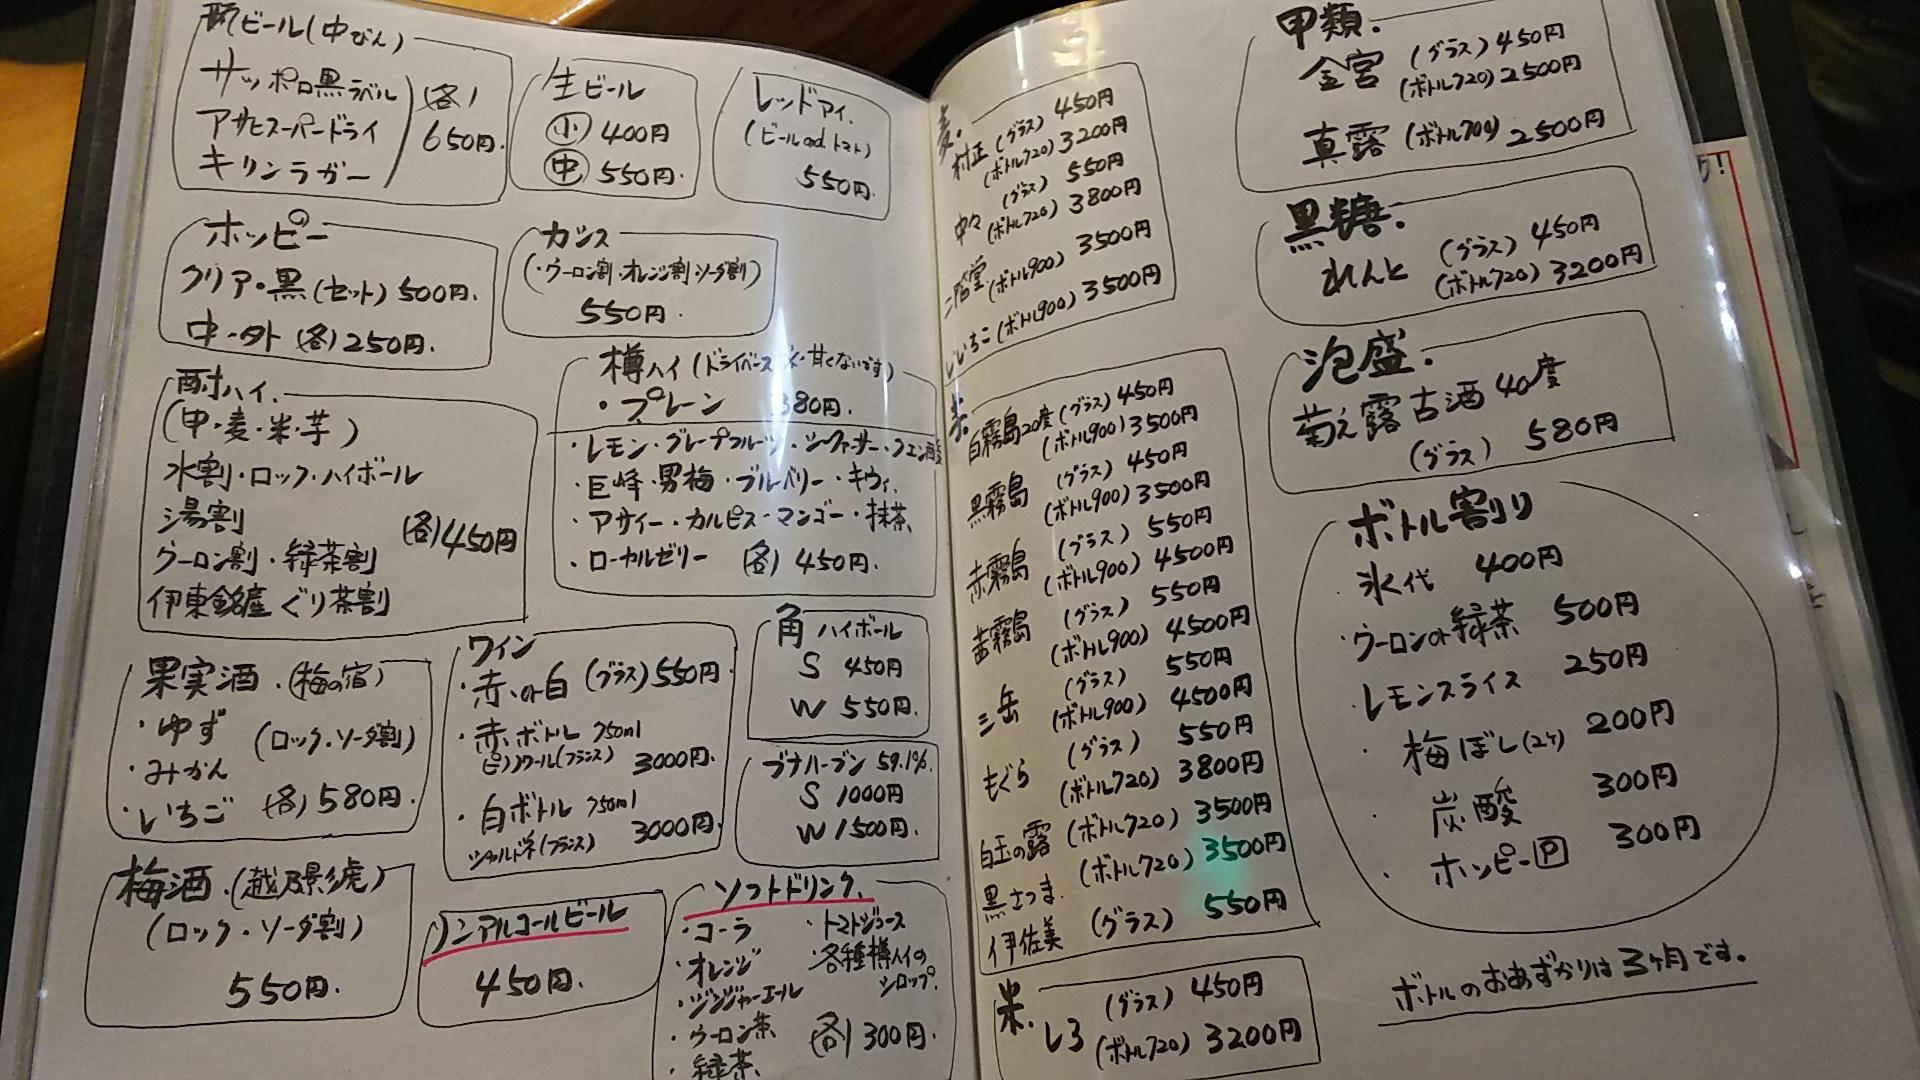 瓶ビール(中びん)
サッポロ黒ラベル
アサヒスーパードライ
キリンラガー
(各)
650円.
生ビール
小 400円
中 550円.
レッドアイ.
(ビール and トマト)
550円.
ホッピー
クリア・黒(セット)500円.
中・外 (各)250円.
カシス
(・ウーロン割・オレンジ割・ソーダ割)
550円.
酎ハイ.
(甲・麦・米・芋)
水割・ロック・ハイボール
湯割
ウーロン割・緑茶割
伊東銘産 ぐり茶割
(各)450円
樽ハイ(ドライベース 甘くないです)
・プレーン 380円.
・レモン・グレープフルーツ・シークァーサー・クエン酸
・巨峰・男梅・ブルーベリー・キウイ.
・アサイー・カルピス・マンゴー・抹茶
・ローカルゼリー (各) 450円.
果実酒.(梅の宿)
・ゆず
・みかん
・いちご
(ロック・ソーダ割)
(各)580円.
ワイン
・赤 or 白 (グラス)550円.
・赤ボトル 750ml
ピノノワール(フランス) 3000円.
・白ボトル 750ml
シャルドネ(フランス) 3000円.
角 ハイボール
S 450円
W 550円.
ブナハーブン 59.1%.
S 1000円
W 1500円.
梅酒.(越乃景虎)
(ロック・ソーダ割)
550円.
ノンアルコールビール
450円.
ソフトドリンク.
・コーラ
・オレンジ
・ジンジャーエール
・ウーロン茶
・緑茶
・トマトジュース
・各種樽ハイの
シロップ.
(各)300円.
麦.
村正 (グラス) 450円
(ボトル720) 3200円
中々 (グラス) 550円
(ボトル720) 3800円
二階堂(ボトル900) 3500円
いいちこ(ボトル900) 3500円
白霧島20度(グラス)450円
(ボトル900)3500円
黒霧島 (グラス) 450円
(ボトル900)3500円
赤霧島 (グラス) 550円
(ボトル900) 4500円
茜霧島 (グラス) 550円
(ボトル900) 4500円
三岳 (グラス) 550円
(ボトル900) 4500円
もぐら (グラス) 550円
(ボトル720) 3800円
白玉の露(ボトル720) 3500円
黒さつま.(ボトル720) 3500円
伊佐美 (グラス) 550円
米.
しろ (グラス) 450円
(ボトル720) 3200円
甲類.
金宮 (グラス) 450円
(ボトル720) 2500円
真露(ボトル700) 2500円
黒糖.
れんと (グラス) 450円
(ボトル720) 3200円
泡盛.
菊之露古酒40度
(グラス) 580円
ボトル割り
・氷代 400円
・ウーロン or 緑茶 500円
・レモンスライス 250円
・梅ぼし(2ヶ) 200円
・炭酸 300円
・ホッピーP 300円
ボトルのおあずかりは3ヶ月です.